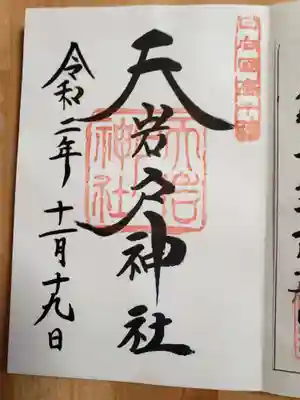 天岩戸神社
令和二年十一月十九日
天岩
神社